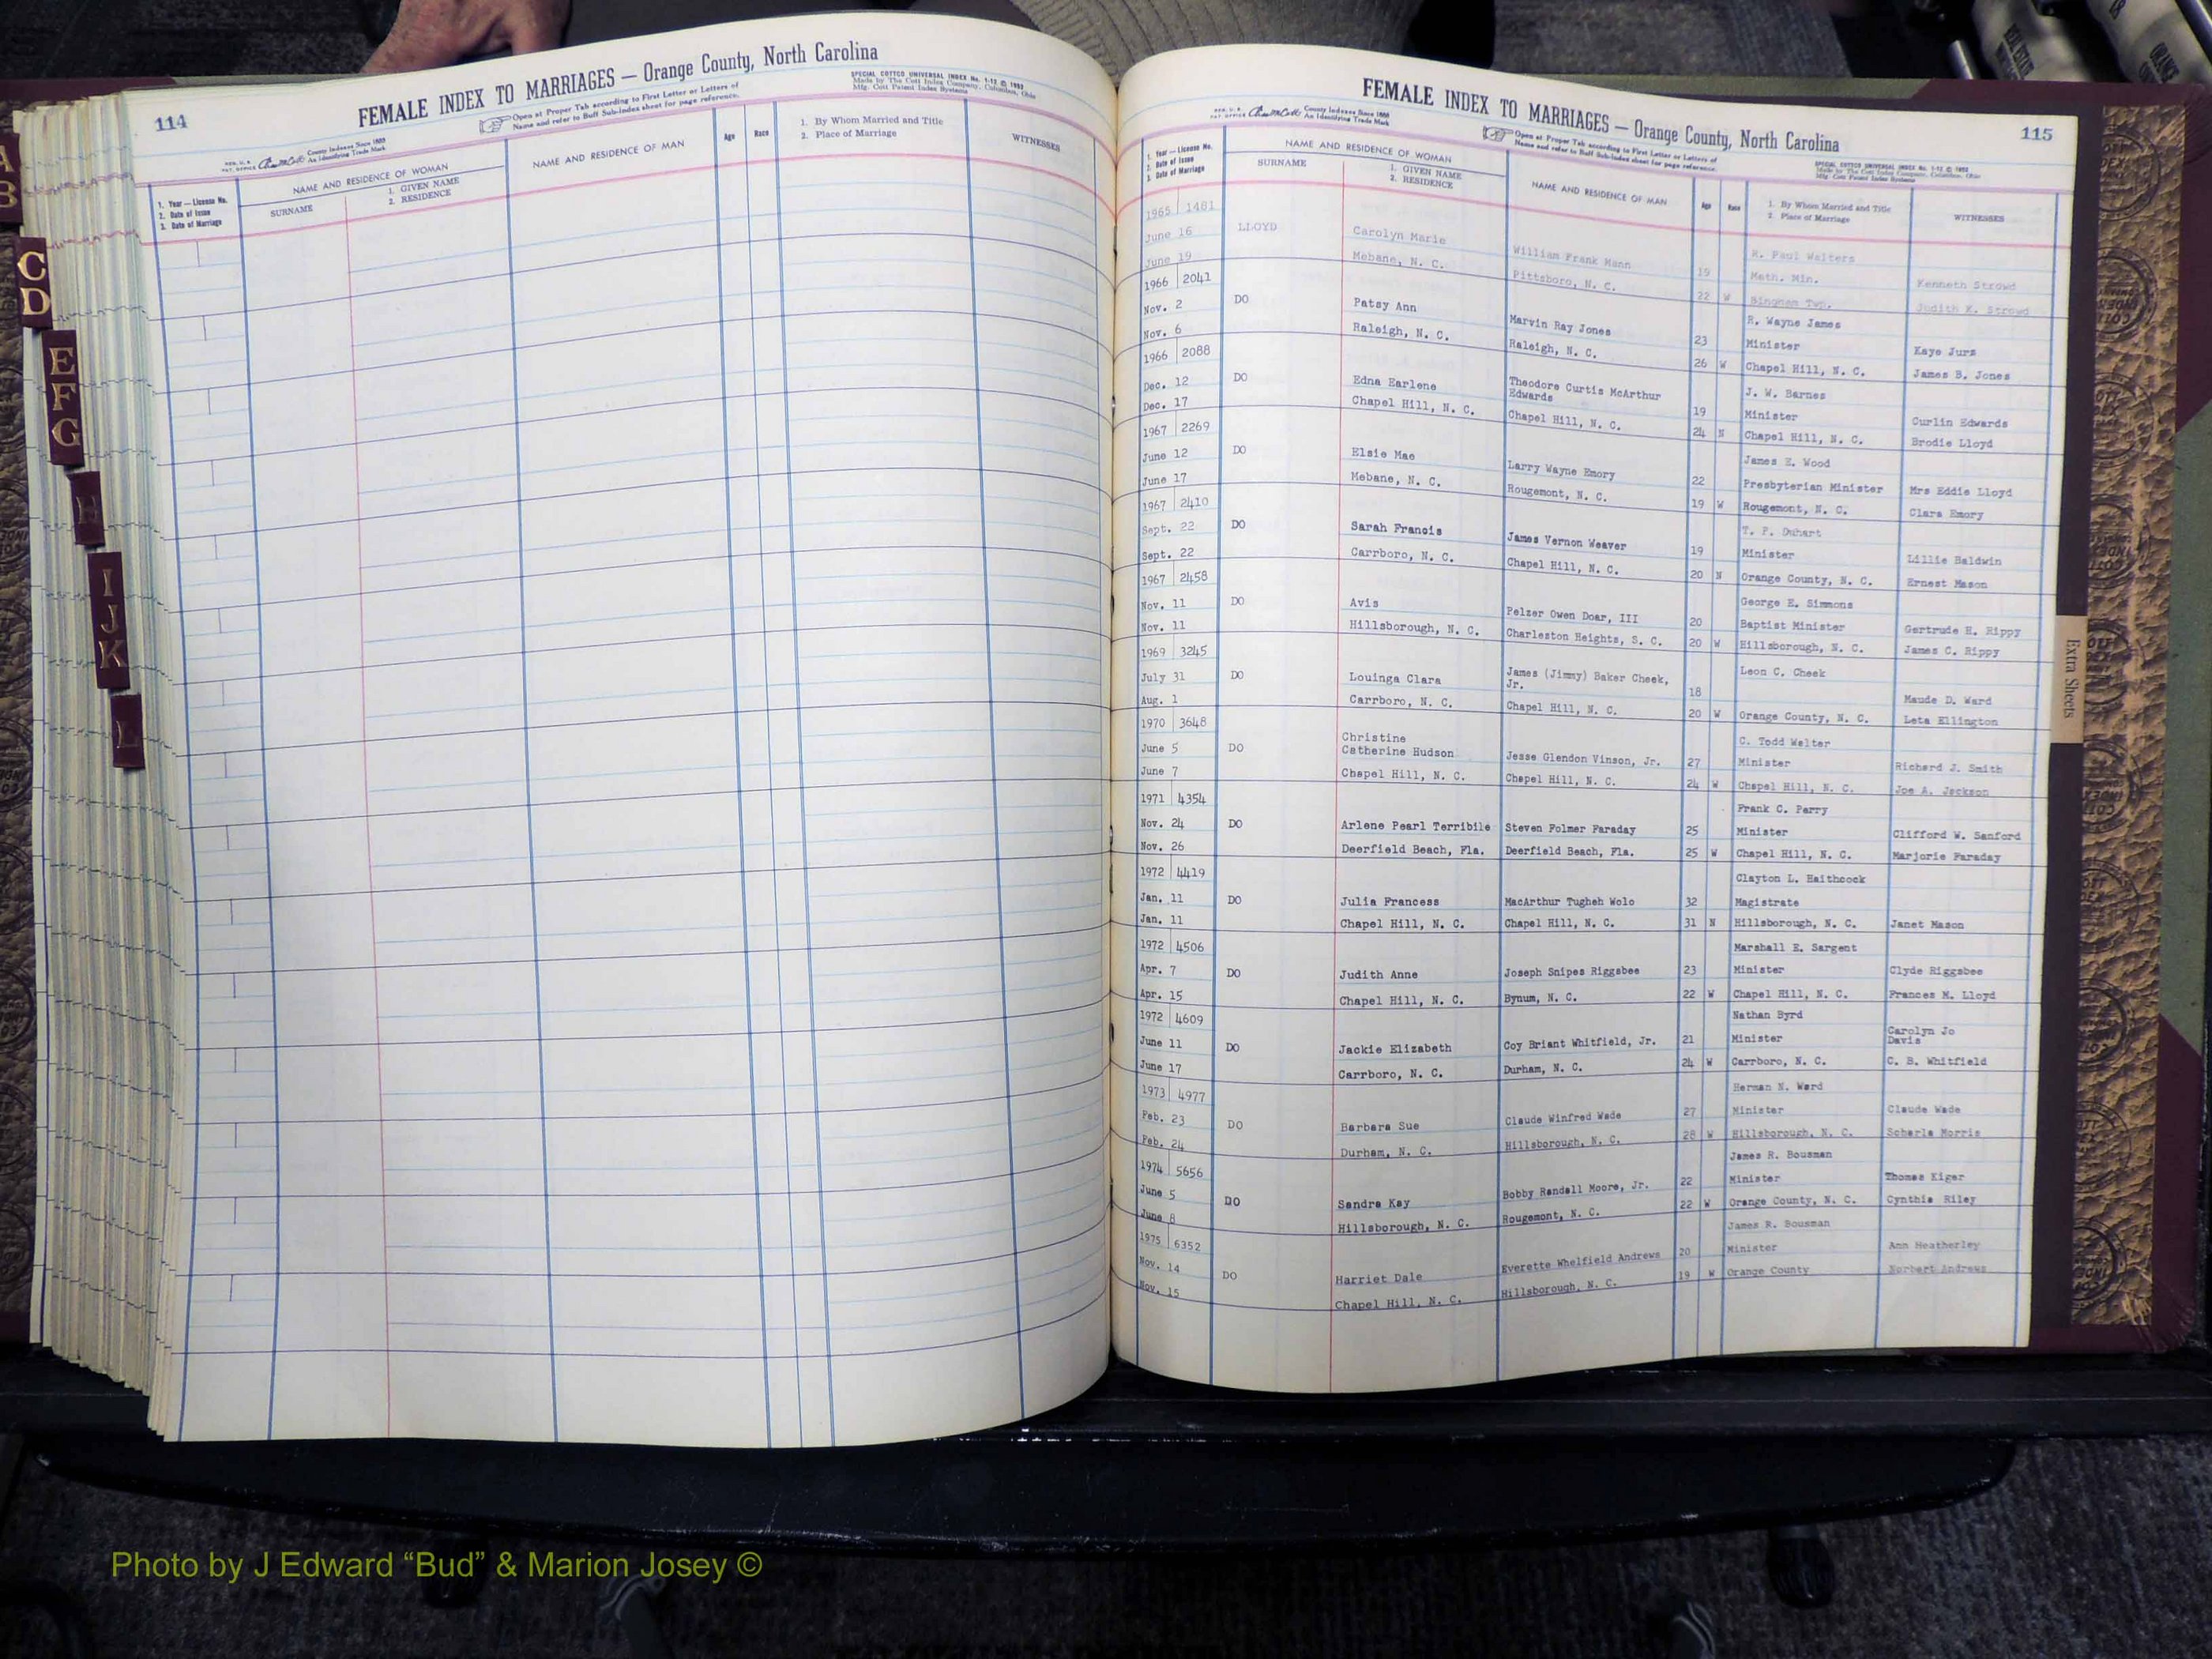 114
FEMALE INDEX TO MARRIAGES — Orange County, North Carolina
Open at Proper Tab according to First Letter or Letters of
Name and refer to Buff Sub-Index sheet for page reference.
SPECIAL COTTCO UNIVERSAL INDEX No. 1-12 © 1952
Made by The Cott Index Company, Columbus, Ohio
Mfg. Cott Patent Index Systems
County Indexes Since 1888
An Identifying Trade Mark
1. Year — License No.
2. Date of Issue
3. Date of Marriage
NAME AND RESIDENCE OF WOMAN
SURNAME
1. GIVEN NAME
2. RESIDENCE
NAME AND RESIDENCE OF MAN
Age
Race
1. By Whom Married and Title
2. Place of Marriage
WITNESSES
C
D
E
F
G
H
I
J
K
L
115
FEMALE INDEX TO MARRIAGES — Orange County, North Carolina
County Indexes Since 1888
An Identifying Trade Mark
Open at Proper Tab according to First Letter or Letters of
Name and refer to Buff Sub-Index sheet for page reference.
SPECIAL COTTCO UNIVERSAL INDEX No. 1-12 © 1952
Made by The Cott Index Company, Columbus, Ohio
Mfg. Cott Patent Index Systems
1. Year — License No.
2. Date of Issue
3. Date of Marriage
NAME AND RESIDENCE OF WOMAN
SURNAME
1. GIVEN NAME
2. RESIDENCE
NAME AND RESIDENCE OF MAN
Age
Race
1. By Whom Married and Title
2. Place of Marriage
WITNESSES
1965 1481 R. Paul Walters
June 16 LLOYD Carolyn Marie William Frank Mann 19 Meth. Min. Kenneth Strowd
June 19 Mebane, N. C. Pittsboro, N. C. 22 W Bingham Twp. Judith K. Strowd
1966 2041 R. Wayne James
Nov. 2 DO Patsy Ann Marvin Ray Jones 23 Minister Kaye Jurs
Nov. 6 Raleigh, N. C. Raleigh, N. C. 26 W Chapel Hill, N. C. James B. Jones
1966 2088 J. W. Barnes
Dec. 12 DO Edna Earlene Theodore Curtis McArthur Edwards 19 Minister Curlin Edwards
Dec. 17 Chapel Hill, N. C. Chapel Hill, N. C. 24 N Chapel Hill, N. C. Brodie Lloyd
1967 2269 James E. Wood
June 12 DO Elsie Mae Larry Wayne Emory 22 Presbyterian Minister Mrs Eddie Lloyd
June 17 Mebane, N. C. Rougemont, N. C. 19 W Rougemont, N. C. Clara Emory
1967 2410 T. P. Duhart
Sept. 22 DO Sarah Francis James Vernon Weaver 19 Minister Lillie Baldwin
Sept. 22 Carrboro, N. C. Chapel Hill, N. C. 20 N Orange County, N. C. Ernest Mason
1967 2458 George E. Simmons
Nov. 11 DO Avis Pelzer Owen Doar, III 20 Baptist Minister Gertrude H. Rippy
Nov. 11 Hillsborough, N. C. Charleston Heights, S. C. 20 W Hillsborough, N. C. James C. Rippy
1969 3245 Leon C. Cheek
July 31 DO Louinga Clara James (Jimmy) Baker Cheek, Jr. 18 Maude D. Ward
Aug. 1 Carrboro, N. C. Chapel Hill, N. C. 20 W Orange County, N. C. Leta Ellington
1970 3648 C. Todd Walter
June 5 DO Christine Catherine Hudson Jesse Glendon Vinson, Jr. 27 Minister Richard J. Smith
June 7 Chapel Hill, N. C. Chapel Hill, N. C. 24 W Chapel Hill, N. C. Joe A. Jackson
1971 4354 Frank C. Perry
Nov. 24 DO Arlene Pearl Terribile Steven Folmer Faraday 25 Minister Clifford W. Sanford
Nov. 26 Deerfield Beach, Fla. Deerfield Beach, Fla. 25 W Chapel Hill, N. C. Marjorie Faraday
1972 4419 Clayton L. Haithcock
Jan. 11 DO Julia Francess MacArthur Tugheh Wolo 32 Magistrate
Jan. 11 Chapel Hill, N. C. Chapel Hill, N. C. 31 N Hillsborough, N. C. Janet Mason
1972 4506 Marshall E. Sargent
Apr. 7 DO Judith Anne Joseph Snipes Riggsbee 23 Minister Clyde Riggsbee
Apr. 15 Chapel Hill, N. C. Bynum, N. C. 22 W Chapel Hill, N. C. Frances M. Lloyd
1972 4609 Nathan Byrd
June 11 DO Jackie Elizabeth Coy Briant Whitfield, Jr. 21 Minister Carolyn Jo Davis
June 17 Carrboro, N. C. Durham, N. C. 24 W Carrboro, N. C. C. B. Whitfield
1973 4977 Herman N. Ward
Feb. 23 DO Barbara Sue Claude Winfred Wade 27 Minister Claude Wade
Feb. 24 Durham, N. C. Hillsborough, N. C. 28 W Hillsborough, N. C. Scharla Morris
1974 5656 James R. Bousman
June 5 DO Sandra Kay Bobby Randall Moore, Jr. 22 Minister Thomas Kiger
June 8 Hillsborough, N. C. Rougemont, N. C. 22 W Orange County, N. C. Cynthia Riley
1975 6352 James R. Bousman
Nov. 14 DO Harriet Dale Everette Whelfield Andrews 20 Minister Ann Heatherley
Nov. 15 Chapel Hill, N. C. Hillsborough, N. C. 19 W Orange County Norbert Andrews
Extra Sheets
Photo by J Edward “Bud” & Marion Josey ©